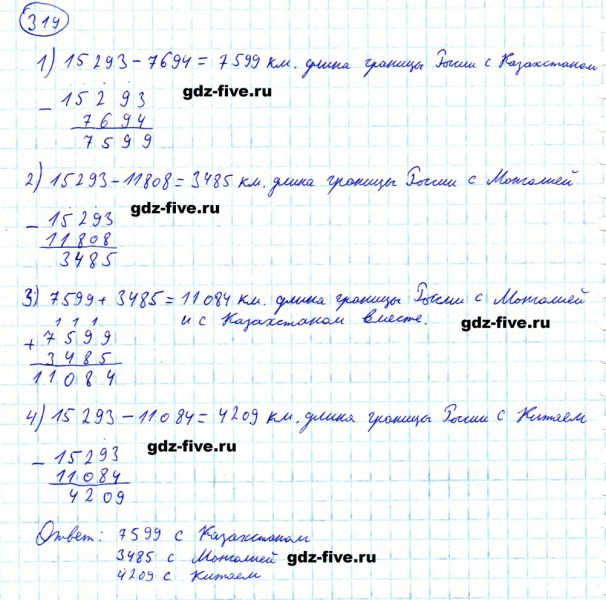 319
1) 15293 - 7694 = 7599 км. длина границы России с Казахстаном
gdz-five.ru
- 15293
7694
7599
2) 15293 - 11808 = 3485 км. длина границы России с Монголией
gdz-five.ru
- 15293
11808
3485
3) 7599 + 3485 = 11084 км. длина границы России с Монголией
и с Казахстаном вместе.
gdz-five.ru
1 1 1
+ 7599
3485
11084
4) 15293 - 11084 = 4209 км. длина границы России с Китаем
gdz-five.ru
- 15293
11084
4209
Ответ: 7599 с Казахстаном
3485 с Монголией
gdz-five.ru
4209 с Китаем